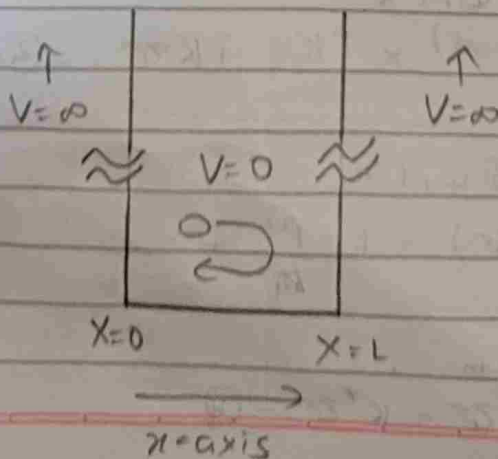 V=∞ V=∞
V=0
X=0 X=L
x-axis